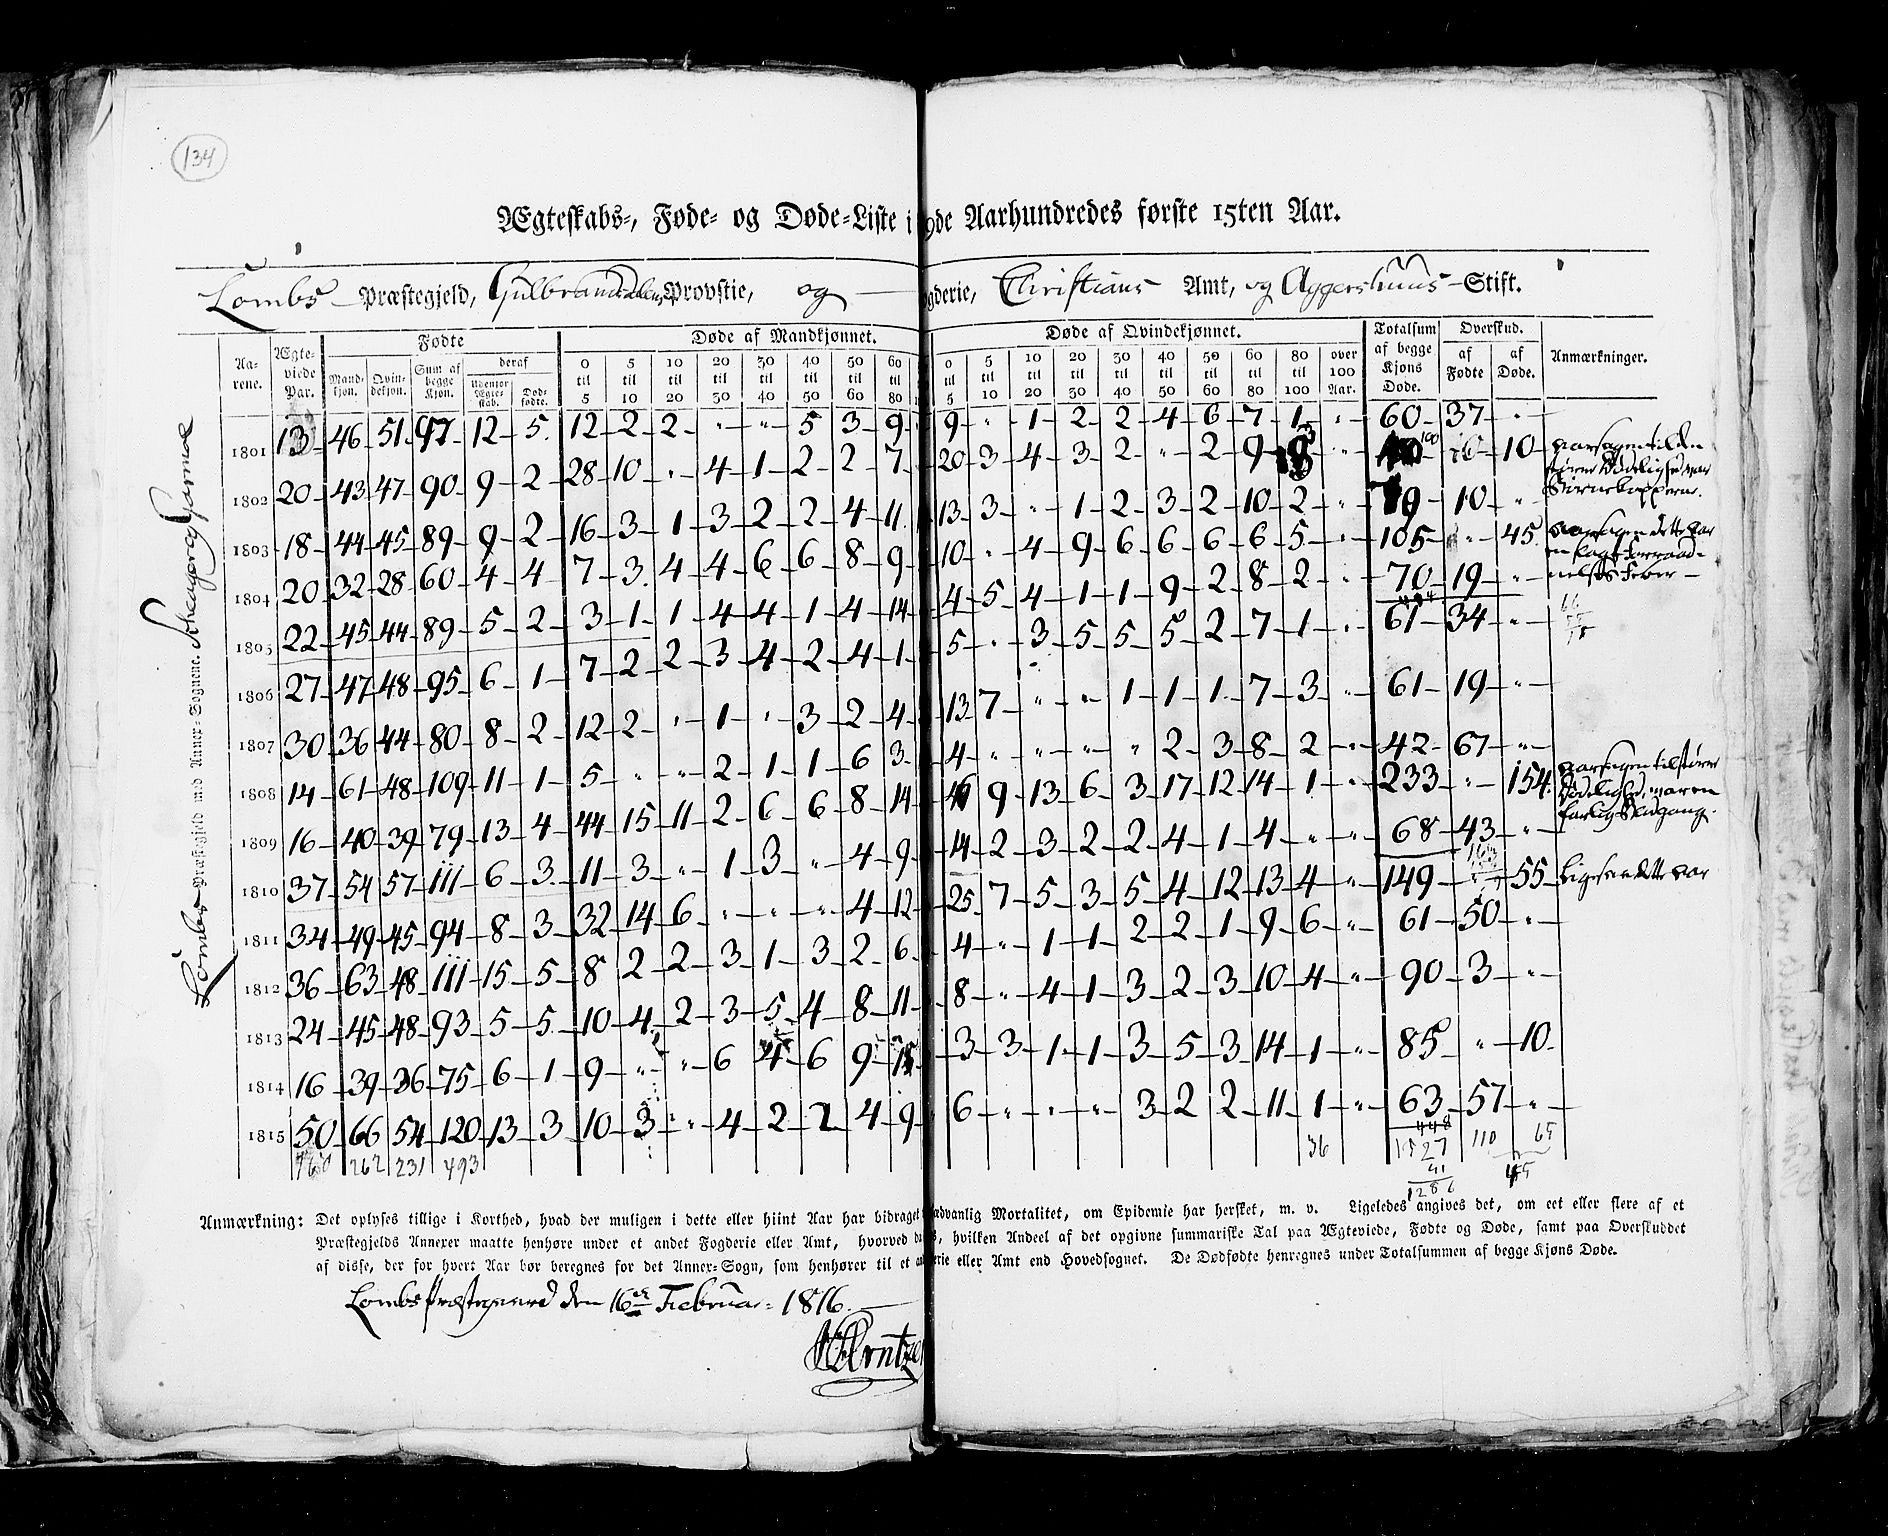 134
Ægteskabs-, Føde- og Døde-Liste i 9de Aarhundredes første 15ten Aar.
Lombs Præstegjeld, Gulbrandsdalens Provstie, og — gderie, Christians Amt, og Aggershuus Stift.
Lombs Præstegjeld med Annex-Sognene.
Aarene. Ægteviede Par. Fødte Døde af Mandkjønnet. Døde af Qvindekjønnet. Totalsum af begge Kjøns Døde. Overskud. Anmærkninger.
Mandkjøn. Qvindekjøn. Sum af begge Kjøn. deraf Udenfor Ægteskab. Dødfødte. 0 til 5 5 til 10 10 til 20 20 til 30 30 til 40 40 til 50 50 til 60 60 til 80 0 til 5 5 til 10 10 til 20 20 til 30 30 til 40 40 til 50 50 til 60 60 til 80 80 til 100 over 100 Aar. af Fødte af Døde.
1801 13 46 51 97 12 5 12 2 2 " " 5 3 9 9 " 1 2 2 4 6 7 1 " 60 37 "
1802 20 43 47 90 9 2 28 10 " 4 1 2 2 7 20 3 4 3 2 " 2 9 3 " 100 10 Aarsagen til den større Dødelighed var Børnekopperne.
1803 18 44 45 89 9 2 16 3 1 3 2 2 4 11 13 3 " 1 2 3 2 10 2 " 79 10 "
1804 20 32 28 60 4 4 7 3 4 4 6 6 8 9 10 " 4 9 6 6 6 6 5 " 105 " 45 Aarsagen dette Aar en Forraadnelses Feber
1805 22 45 44 89 5 2 3 1 1 4 4 1 4 14 4 5 4 1 1 9 2 8 2 " 70 19 "
1806 27 47 48 95 6 1 7 2 2 3 4 2 4 1 5 " 3 5 5 5 2 7 1 " 61 34 "
1807 30 36 44 80 8 2 12 2 " 1 " 3 2 4 13 7 " " " 1 1 1 7 3 " 61 19 "
1808 14 61 48 109 11 1 5 " " 2 1 1 6 3 4 " " " " 2 3 8 2 " 42 67 "
1809 16 40 39 79 13 4 44 15 11 2 6 6 8 14 46 9 13 6 3 17 12 14 1 " 233 " 154 Aarsagen til større Dødelighed, var en farlig Blodgang.
1810 37 54 57 111 6 3 11 3 " 1 3 " 4 9 14 2 3 2 2 4 1 4 " " 68 43 "
1811 34 49 45 94 8 3 32 14 6 " " " 4 12 25 7 5 3 5 4 12 13 4 " 149 " 55 Ligesaa dette Aar
1812 36 63 48 111 15 5 8 2 2 3 1 3 2 6 4 " 1 1 2 2 1 9 6 " 61 50 "
1813 24 45 48 93 5 5 10 4 2 3 5 4 8 11 8 " 4 1 3 2 3 10 4 " 90 3 "
1814 16 39 36 75 6 1 9 " " 6 4 6 9 15 3 3 1 1 3 5 3 14 1 " 85 " 10
1815 50 66 54 120 13 3 10 3 " 4 2 2 4 9 6 " " " 3 2 2 11 1 " 63 57 "
160 262 231 493 36 448 1527 110 65
41
1286
Anmærkning: Det oplyses tillige i Korthed, hvad der muligen i dette eller hiint Aar har bidraget ædvanlig Mortalitet, om Epidemie har hersket, m. v. Ligeledes angives det, om eet eller flere af et
Præstegjelds Annexer maatte henhøre under et andet Fogderie eller Amt, hvorved s, hvilken Andeel af det opgivne summariske Tal paa Ægteviede, Fødte og Døde, samt paa Overskuddet
af disse, der for hvert Aar bør beregnes for det Annex-Sogn, som henhører til et rie eller Amt end Hovedsognet. De Dødfødte henregnes under Totalsummen af begge Kjøns Døde.
Lombs Præstegaard den 16de Februar 1816.
Arntzen